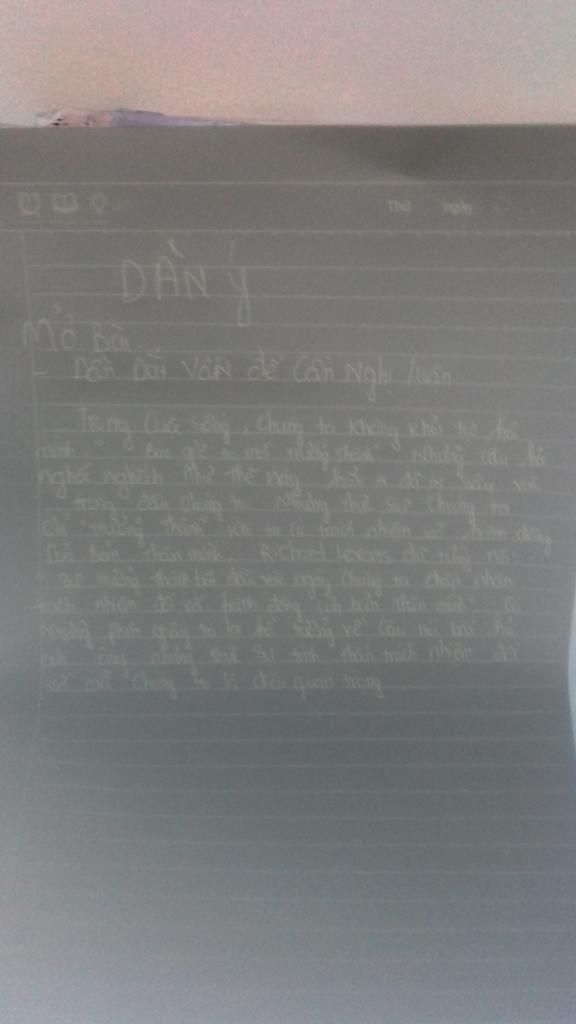 Thứ Ngày
DÀN Ý
Mở Bài.
- Dẫn Dắt Vấn đề Cần Nghị luận
Trong Cuộc sống, Chúng ta không khỏi tự hỏi
mình. " Bao giờ ta mới trưởng thành". Những câu hỏi
nghốc nghếch như thế này
trong Chúng ta. Nhưng thật sự Chúng ta
Chỉ "trưởng Thành" khi ta có trách nhiệm về hành động
Của Bản Thân mình. Richard Evans đã từng nói
" Sự trưởng thành bắt đầu vào ngày Chúng ta chấp nhận
trách nhiệm đối với hành động của bản Thân mình".
Những phút giây ta lại về Câu nói
của ông nhưng thật Sự tinh thần trách nhiệm đối
với mỗi Chúng ta là điều quan trọng